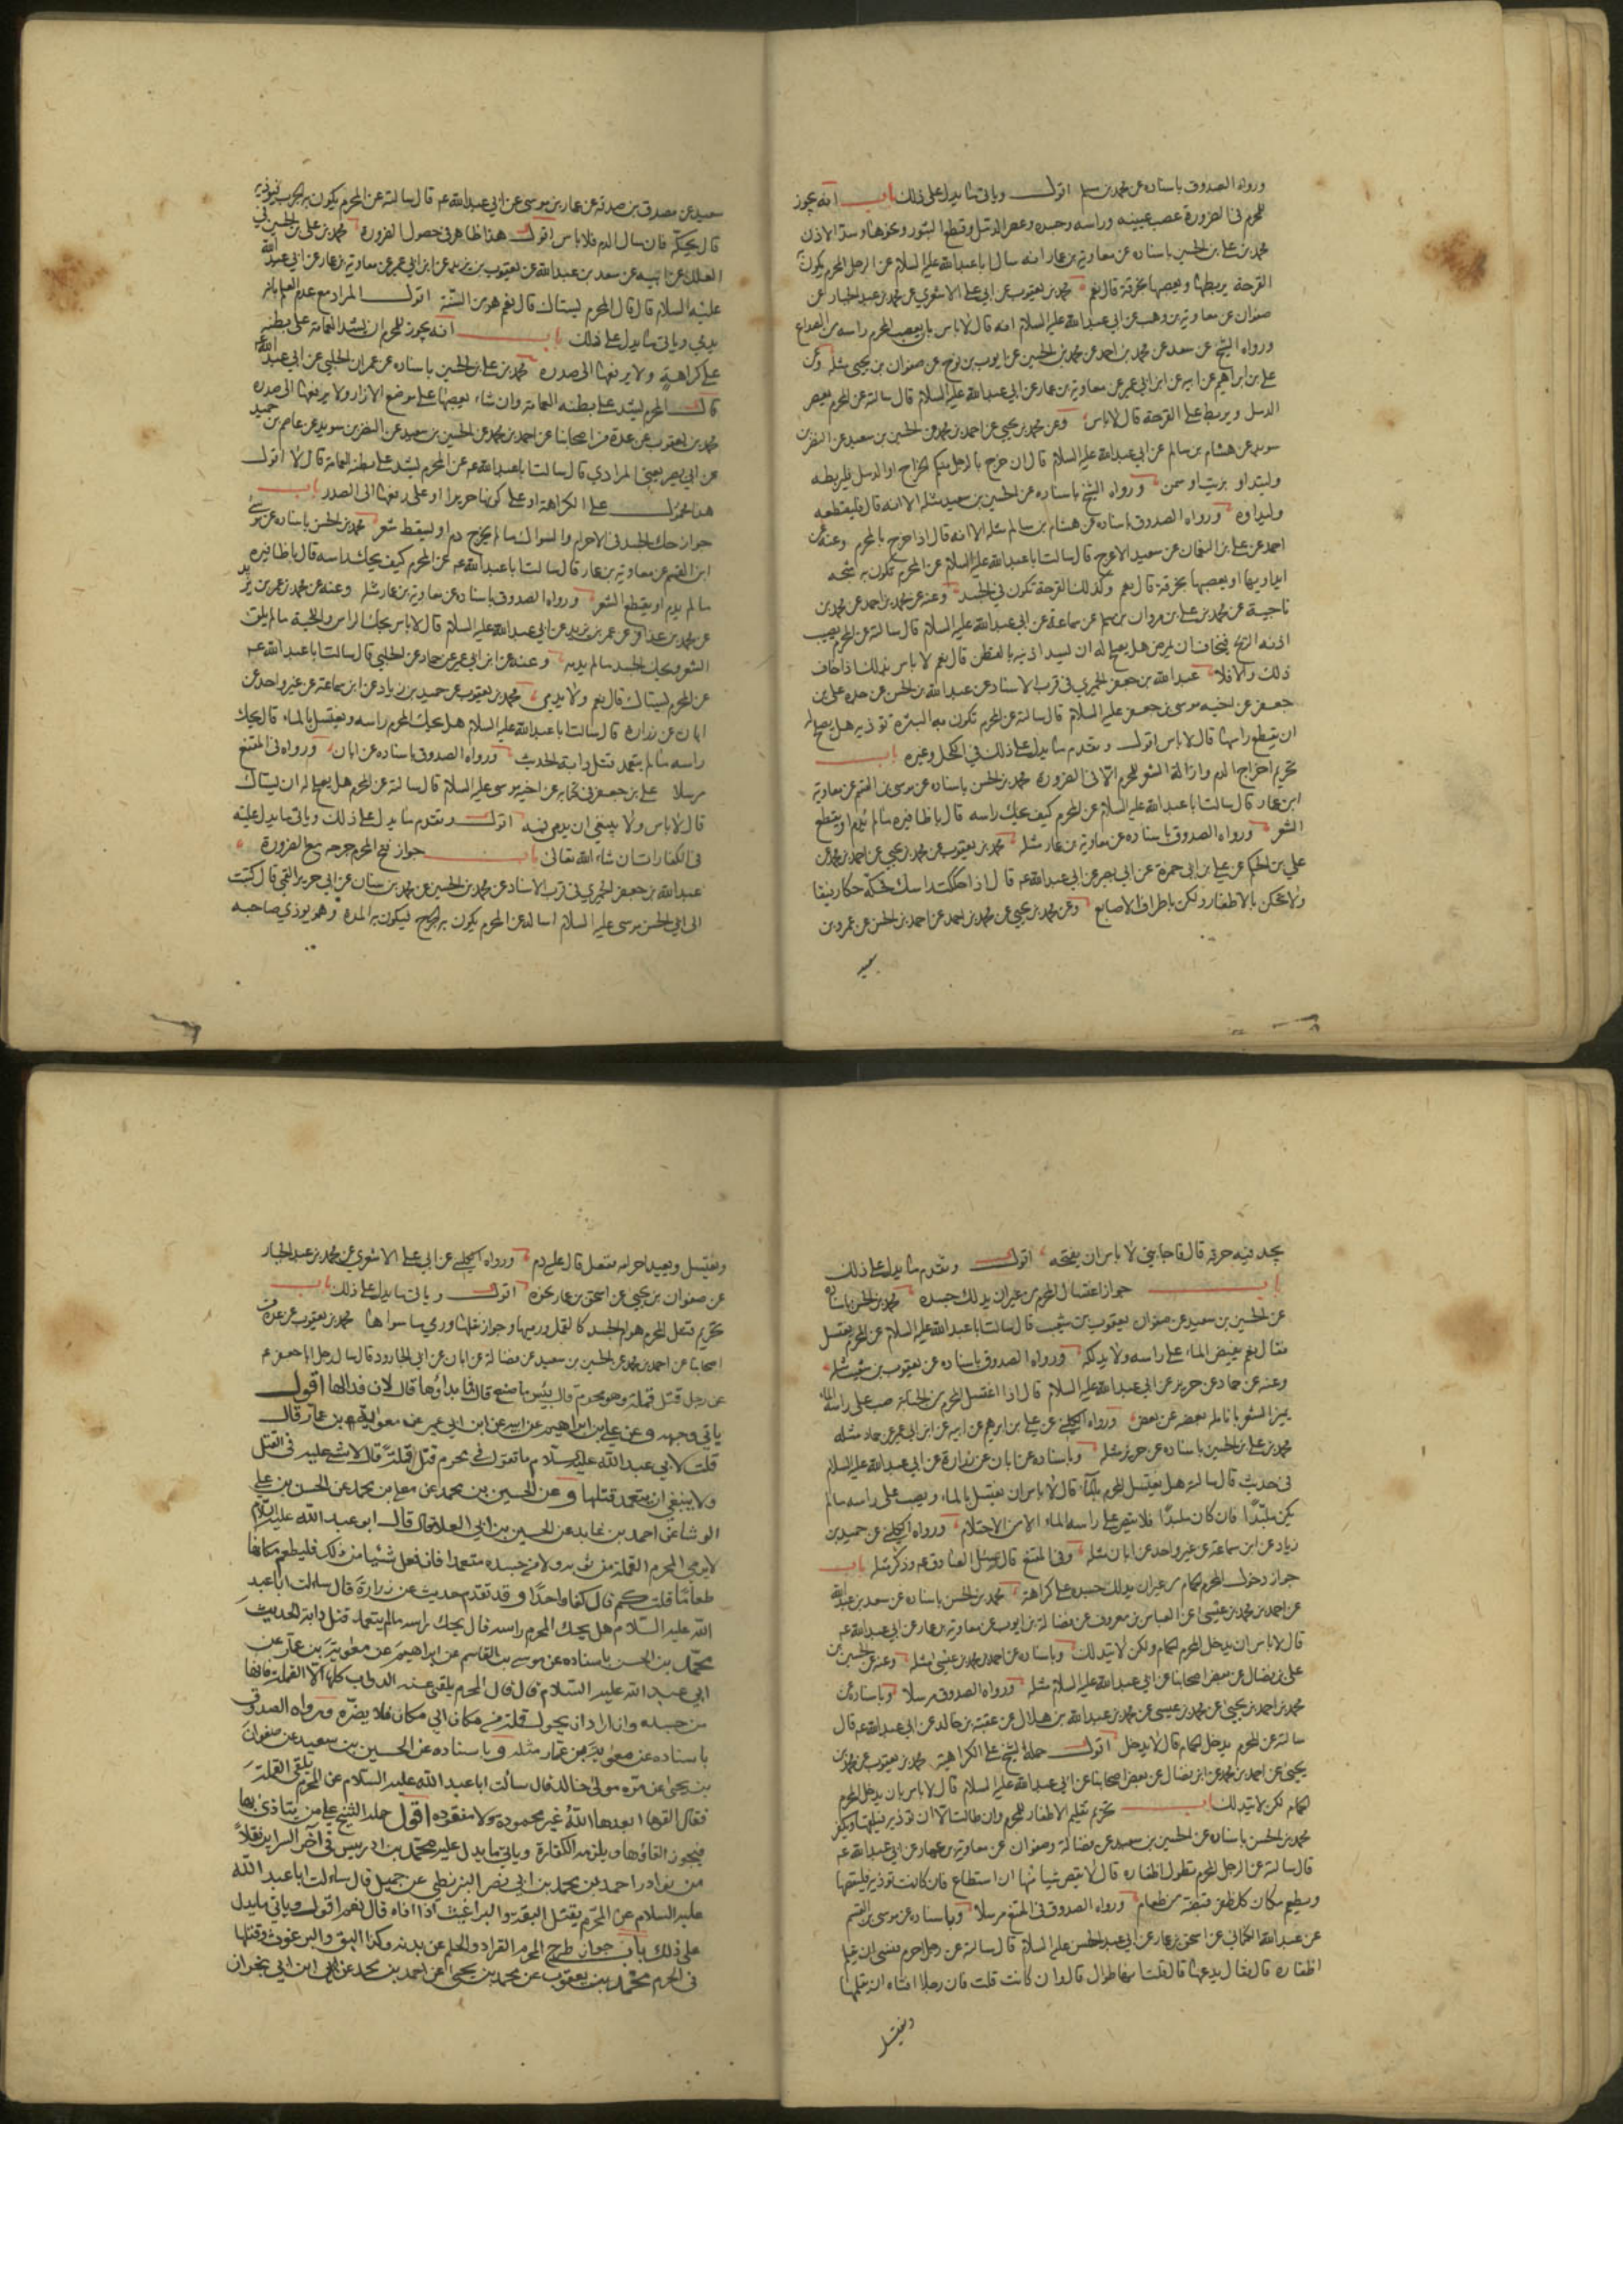 ورواه الصدوق باسناده عن محمد بن مسلم اقول وياتي ما يدل على ذلك باب انه يجوز
للمحرم في الضرورة عصب عينيه وراسه وجسده وعصر الدمل وقطع البثور ونحوها وسد الاذن
محمد بن علي بن الحسين باسناده عن معاوية بن عمار انه سال ابا عبد الله عليه السلام عن الرجل المحرم يكون به
القرحة يربطها ويعصبها بخرقة قال نعم محمد بن يعقوب عن ابي علي الاشعري عن محمد بن عبد الجبار عن
صفوان عن معاوية بن وهب عن ابي عبد الله عليه السلام انه قال لا باس بان يعصب المحرم راسه من الصداع
ورواه الشيخ عن سعد عن محمد بن احمد عن محمد بن الحسين عن ايوب بن نوح عن صفوان بن يحيى مثله وعن
علي بن ابراهيم عن ابيه عن ابن ابي عمير عن معاوية بن عمار عن ابي عبد الله عليه السلام قال سالته عن المحرم يعصر
الدمل ويربط على القرحة قال لا باس وعن محمد بن يحيى عن احمد بن محمد عن الحسين بن سعيد عن النضر بن
سويد عن هشام بن سالم عن ابي عبد الله عليه السلام قال ان خرج بالرجل منكم الخراج او الدمل فليربطه
وليتداو بزيت او سمن ورواه الشيخ باسناده عن الحسين بن سعيد مثله الا انه قال فليقطعه
وليداوه ورواه الصدوق باسناده عن هشام بن سالم مثله الا انه قال اذا خرج بالمحرم وعنه عن
احمد عن علي بن النعمان عن سعيد الاعرج قال سالت ابا عبد الله عليه السلام عن المحرم تكون به شجة
ايداويها او يعصبها بخرقة قال نعم وكذلك القرحة تكون في الجسد وعنه عن محمد بن احمد عن محمد بن
ناجية عن محمد بن علي بن مروان بن مسلم عن سماعة عن ابي عبد الله عليه السلام قال سالته عن المحرم يصيب
اذنه الريح فيخاف ان يمرض هل يصلح له ان يسد اذنيه بالقطن قال نعم لا باس بذلك اذا خاف
ذلك والا فلا عبد الله بن جعفر الحميري في قرب الاسناد عن عبد الله بن الحسن عن جده علي بن
جعفر عن اخيه موسى بن جعفر عليه السلام قال سالته عن المحرم تكون به البثرة توذيه هل يصلح له
ان يقطع راسها قال لا باس اقول وتقدم ما يدل على ذلك في الكحل وغيره باب
تحريم اخراج الدم وازالة الشعر للمحرم الا في الضرورة محمد بن الحسن باسناده عن موسى بن القسم عن معاوية
ابن عمار قال سالت ابا عبد الله عليه السلام عن المحرم كيف يحك راسه قال باظافيره ما لم يدم او يقطع
الشعر ورواه الصدوق باسناده عن معاوية بن عمار مثله محمد بن يعقوب عن محمد بن يحيى عن احمد بن محمد عن
علي بن الحكم عن علي بن ابي حمزة عن ابي بصير عن ابي عبد الله عه قال اذا حككت راسك فحكه حكا رفيقا
ولا تحكن بالاظفار ولكن باطراف الاصابع وعن محمد بن يحيى عن محمد بن احمد عن احمد بن الحسن عن عمرو بن
سعيد
سعيد عن مصدق بن صدقة عن عمار بن موسى عن ابي عبد الله عه قال سالته عن المحرم يكون به الجرب فيوذيه
قال يحكه فان سال الدم فلا باس اقول هذا ظاهر في حصول الضرورة محمد بن علي بن الحسين في
العلل عن ابيه عن سعد بن عبد الله عن يعقوب بن يزيد عن ابن ابي عمير عن معاوية بن عمار عن ابي عبد الله
عليه السلام قال قال المحرم ليستاك قال نعم هو من السنة اقول المراد مع عدم العلم بانه
يدمي وياتي ما يدل على ذلك باب انه يجوز للمحرم ان يشد العمامة على بطنه
على كراهية ولا يرفعها الى صدره محمد بن علي بن الحسين باسناده عن عمران الحلبي عن ابي عبد الله عه
قال المحرم يشد على بطنه العمامة وان شاء يعصبها على موضع الازار ولا يرفعها الى صدره
محمد بن يعقوب عن عدة من اصحابنا عن احمد بن محمد عن الحسين بن سعيد عن النضر بن سويد عن عاصم بن حميد
عن ابي بصير يعني المرادي قال سالت ابا عبد الله عه عن المحرم يشد على بطنه العمامة قال لا اقول
هذا محمول على الكراهة او على كونها حريرا او على رفعها الى الصدر باب
جواز حك الجسد في الاحرام والسواك ما لم يخرج دم او يسقط شعر محمد بن الحسن باسناده عن موسى
ابن القسم عن معاوية بن عمار قال سالت ابا عبد الله عه عن المحرم كيف يحك راسه قال باظافيره
ما لم يدم او يقطع الشعر ورواه الصدوق باسناده عن معاوية بن عمار مثله وعنه عن محمد بن عمر بن يزيد
عن محمد بن عذافر عن عمر بن يزيد عن ابي عبد الله عليه السلام قال لا باس بحك الراس واللحية ما لم يلق
الشعر وبحك الجسد ما لم يدمه وعنه عن ابن ابي عمير عن حماد عن الحلبي قال سالت ابا عبد الله عه
عن المحرم يستاك قال نعم ولا يدمي محمد بن يعقوب عن حميد بن زياد عن ابن سماعة عن غير واحد عن
ابان عن زرارة قال سالت ابا عبد الله عليه السلام هل يحك المحرم راسه ويغتسل بالماء قال يحك
راسه ما لم يتعمد قتل دابة الحديث ورواه الصدوق باسناده عن ابان ورواه في المقنع
مرسلا علي بن جعفر في كتابه عن اخيه موسى عليه السلام قال سالته عن المحرم هل يصلح له ان يستاك
قال لا باس ولا ينبغي ان يدمي فمه اقول وتقدم ما يدل على ذلك وياتي ما يدل عليه
في الكفارات ان شاء الله تعالى باب جواز فتح المحرم جرحه مع الضرورة
عبد الله بن جعفر الحميري في قرب الاسناد عن محمد بن الحسين عن محمد بن سنان عن ابي جرير القمي قال كتبت
الى ابي الحسن موسى عليه السلام اساله عن المحرم يكون به الجرح فيكون به المدة وهو يوذي صاحبه
يجد فيه حرقة قال فاجابني لا باس ان يفتحه اقول وتقدم ما يدل على ذلك
باب جواز اغتسال المحرم من غير ان يدلك جسده محمد بن الحسن باسناده
عن الحسين بن سعيد عن صفوان يعقوب بن شعيب قال سالت ابا عبد الله عليه السلام عن المحرم يغتسل
فقال نعم يفيض الماء على راسه ولا يدلكه ورواه الصدوق باسناده عن يعقوب بن شعيب مثله
وعنه عن حماد عن حريز عن ابي عبد الله عليه السلام قال اذا اغتسل المحرم من الجنابة صب على راسه الماء
يميز الشعر بانامله بعضه عن بعض ورواه الكليني عن علي بن ابرهيم عن ابيه عن ابن ابي عمير عن حماد مثله
محمد بن علي بن الحسين باسناده عن حريز مثله وباسناده عن ابان عن زرارة عن ابي عبد الله عليه السلام
في حديث قال سالته هل يغتسل المحرم بالماء قال لا باس ان يغتسل بالماء ويصب على راسه ما لم
يكن ملبدا فان كان ملبدا فلا يفيض على راسه الماء الا من الاحتلام ورواه الكليني عن حميد بن
زياد عن ابن سماعة عن غير واحد عن ابان مثله وفي المقنع قال سئل الصادق عه وذكر مثله باب
جواز دخول المحرم الحمام من غير ان يدلك جسده على كراهة محمد بن الحسن باسناده عن سعد بن عبد الله
عن احمد بن محمد بن عيسى عن العباس بن معروف عن فضالة بن ايوب عن معاوية بن عمار عن ابي عبد الله عه
قال لا باس ان يدخل المحرم الحمام ولكن لا يتدلك وباسناده عن احمد بن محمد بن عيسى مثله وعنه عن الحسين بن
علي بن فضال عن بعض اصحابنا عن ابي عبد الله عليه السلام مثله ورواه الصدوق مرسلا وباسناده عن
محمد بن احمد بن يحيى عن محمد بن عيسى عن محمد بن عبد الله بن هلال عن عقبة بن خالد عن ابي عبد الله عه قال
سالته عن المحرم يدخل الحمام قال لا يدخل اقول حمله الشيخ على الكراهية محمد بن يعقوب عن محمد بن
يحيى عن احمد بن محمد عن ابن فضال عن بعض اصحابنا عن ابي عبد الله عليه السلام قال لا باس بان يدخل المحرم
الحمام لكن لا يتدلك باب تحريم تقليم الاظفار للمحرم وان طالت الا ان توذيه فيقلمها ويكفر
محمد بن الحسن باسناده عن الحسين بن سعيد عن فضالة وصفوان عن معاوية بن عمار عن ابي عبد الله عه
قال سالته عن الرجل المحرم تطول اظفاره قال لا يقص شيا منها ان استطاع فان كانت توذيه فليقصها
وليطعم مكان كل ظفر قبضة من طعام ورواه الصدوق في المقنع مرسلا وباسناده عن موسى بن القسم
عن عبد الله الكناني عن اسحق بن عمار عن ابي الحسن عليه السلام قال سالته عن رجل احرم فنسي ان يقلم
اظفاره قال فقال يدعها قال قلت انها طوال قال وان كانت قلت فان رجلا افتاه ان يقلمها
ويغتسل
ويغتسل ويعيد احرامه ففعل قال عليه دم ورواه الكليني عن ابي علي الاشعري عن محمد بن عبد الجبار
عن صفوان بن يحيى عن اسحق بن عمار نحوه اقول وياتي ما يدل على ذلك باب
تحريم قتل المحرم هوام الجسد كالقمل ورميها وجواز نقلها ورمي ما سواها محمد بن يعقوب عن عدة من
اصحابنا عن احمد بن محمد عن الحسين بن سعيد عن فضالة عن ابان عن ابي الجارود قال سال رجل ابا جعفر عه
عن رجل قتل قملة وهو محرم قال بئس ما صنع قال فما فداؤها قال لا فداء لها اقول
ياتي وجهه وعن علي بن ابراهيم عن ابيه عن ابن ابي عمير عن معوية بن عمار قال
قلت لابي عبد الله عليه السلام ما تقول في محرم قتل قملة قال لا شئ عليه في القمل
ولا ينبغي ان يتعمد قتلها وعن الحسين بن محمد عن معلى بن محمد عن الحسن بن علي
الوشا عن احمد بن عايد عن الحسين بن ابي العلا قال قال ابو عبد الله عليه السلام
لا يرمي المحرم القملة من ثوبه ولا من جسده متعمدا فان فعل شئيا من ذلك فليطعم مكانها
طعاما قلت كم قال كفا واحدا وقد تقدم حديث عن زرارة قال سالت ابا عبد
الله عليه السلام هل يحك المحرم راسه قال يحك راسه ما لم يتعمد قتل دابة الحديث
محمد بن الحسن باسناده عن موسى بن القاسم عن ابراهيم عن معوية بن عمار عن
ابي عبد الله عليه السلام قال قال المحرم يلقي عنه الدواب كلها الا القملة فانها
من جسده وان اراد ان يحول قملة من مكان الى مكان فلا يضره ورواه الصدوق
باسناده عن معوية بن عمار مثله وباسناده عن الحسين بن سعيد عن صفوان
بن يحيى عن مرة مولى خالد قال سالت ابا عبد الله عليه السلام عن المحرم يلقي القملة
فقال القوها ابعدها الله غير محمودة ولا مفقودة اقول حمله الشيخ على من يتاذى بها
فيجوز القاؤها ويلزمه الكفارة وياتي ما يدل عليه محمد بن ادريس في آخر السراير نقلا
من نوادر احمد بن محمد بن ابي نصر البزنطي عن جميل قال سالت ابا عبد الله
عليه السلام عن المحرم يقتل البقة والبراغيث اذا اذاه قال نعم اقول وياتي ما يدل
على ذلك باب جواز طرح المحرم القراد والحلم عن بدنه وكذا البق والبرغوث وقتلها
في الحرم محمد بن يعقوب عن محمد بن يحيى عن احمد بن محمد عن ابن ابي نجران